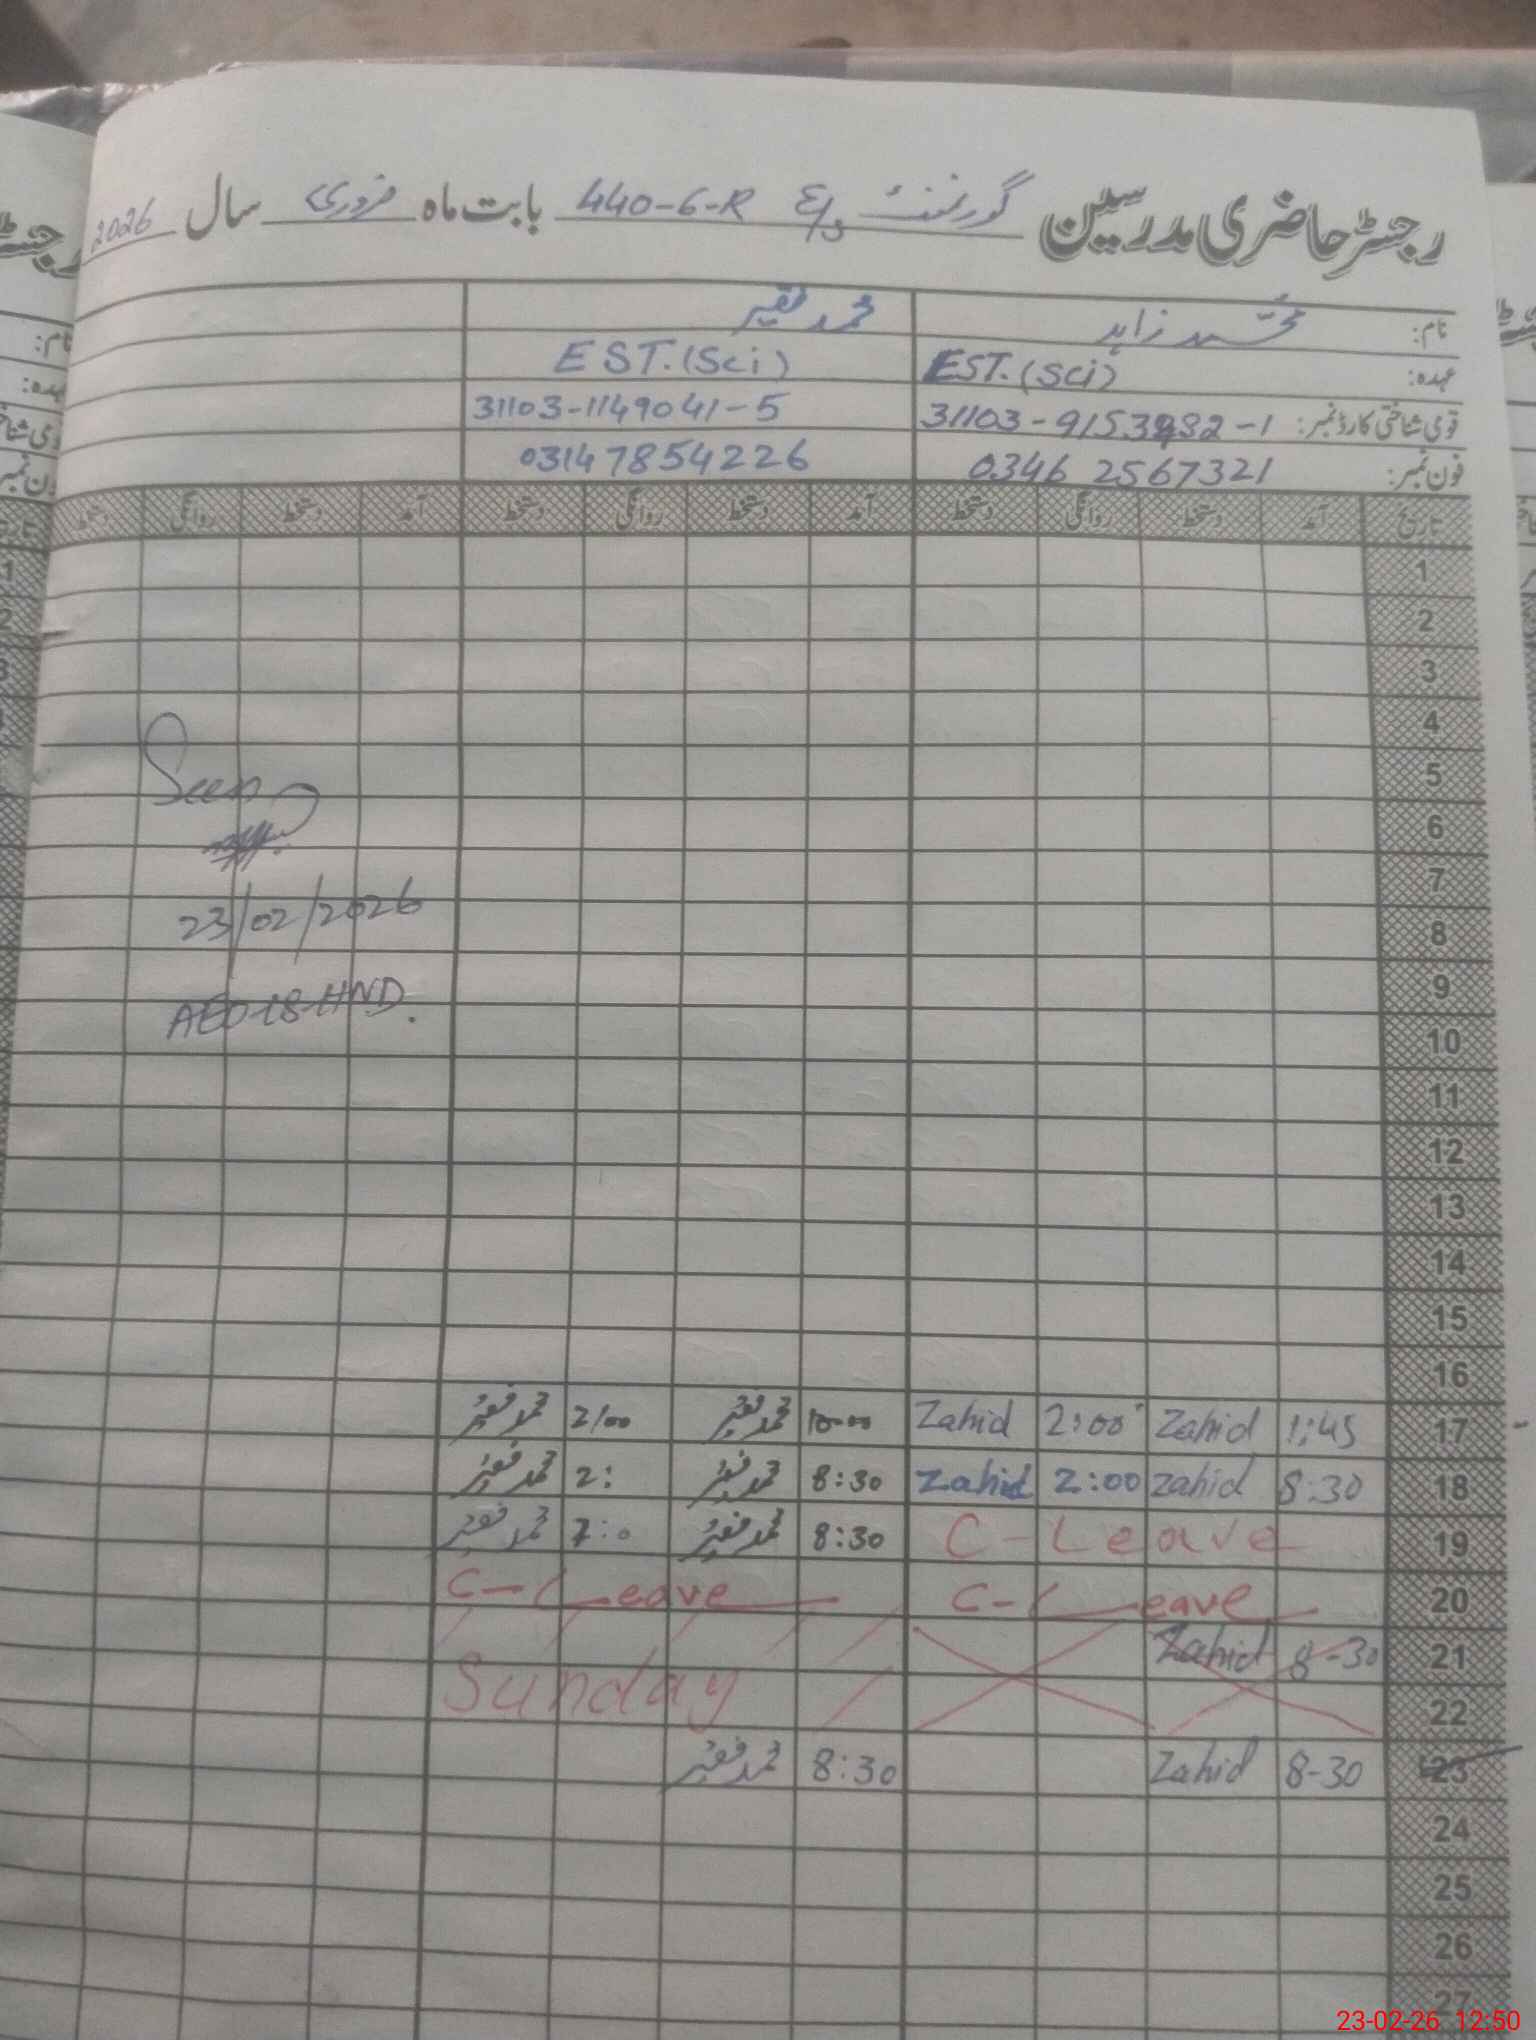 رجسٹر حاضری مدرسین گورنمنٹ 440-6-R بابت ماہ فروری سال 2026
نام: محمد زاہد محمد فقیر
عہدہ: EST.(Sci) EST.(Sci)
قومی شناختی کارڈ نمبر: 31103-1149041-5
فون نمبر: 0346 2567321 03147854226
تاریخ آمد دستخط روانگی دستخط آمد دستخط روانگی دستخط آمد دستخط روانگی دستخط
1
2
3
4
5
Seen
6
7
23/02/2026
8
9
AEO-18-HND.
10
11
12
13
14
15
16
17 1:45 Zahid 2:00 Zahid 10:00 محمد فقیر 2/00 محمد فقیر
18 8:30 Zahid 2:00 Zahid 8:30 محمد فقیر 2: محمد فقیر
19 C-Leave 8:30 محمد فقیر 2:0 محمد فقیر
20 C-Leave C-Leave
21 8-30 Zahid
Sunday
22
23 8-30 Zahid 8:30 محمد فقیر
24
25
26
27
23-02-26 12:50